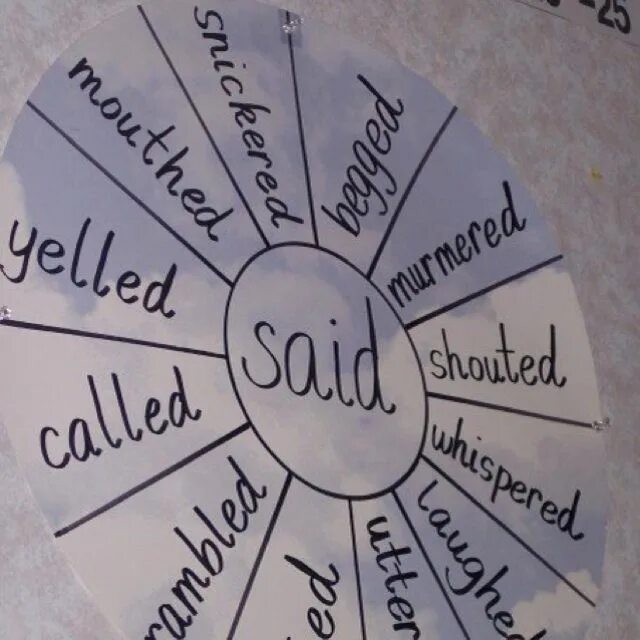 25
said
snickered
begged
murmered
shouted
whispered
laughed
called
yelled
mouthed